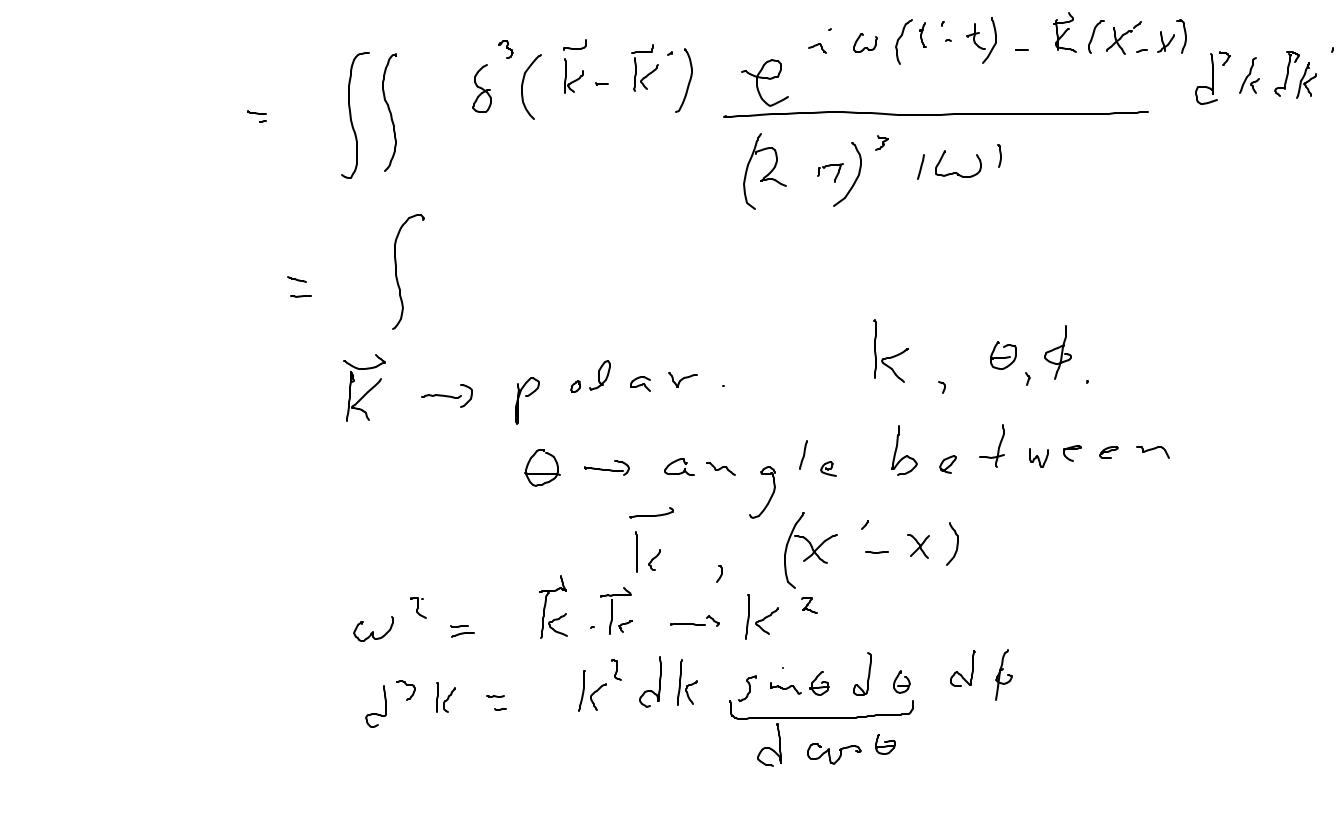 = ∫∫ δ³(k⃗ - k⃗') e^{iω(t'-t) - k⃗(x'-x)} / (2π)³ |ω| d³k d³k'
= ∫
k⃗ → polar. k, θ, φ.
θ → angle between
k⃗, (x' - x)
ω² = k⃗.k⃗ → k²
d³k = k² dk sinθ dθ dφ
d cosθ